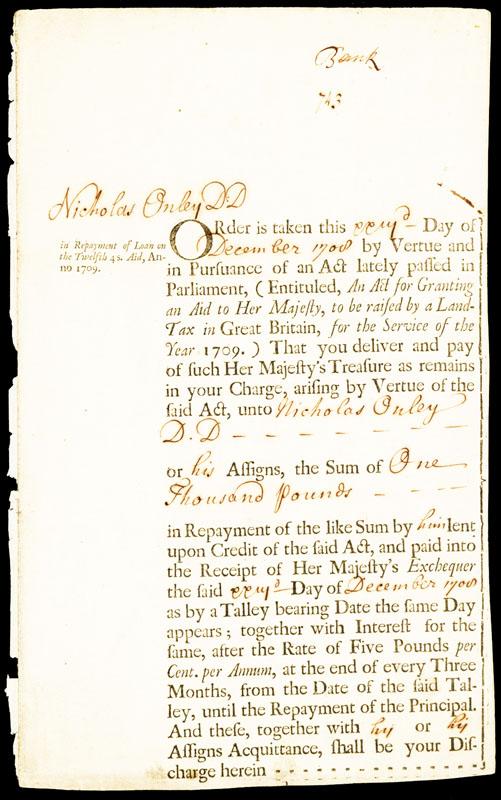 Bank
743
Nicholas Onley D.D
in Repayment of Loan on
the Twelfth 4s. Aid, An-
no 1709.
ORder is taken this xxiijd Day of
December 1708 by Vertue and
in Pursuance of an Act lately paſſed in
Parliament, ( Entituled, An Act for Granting
an Aid to Her Majeſty, to be raiſed by a Land-
Tax in Great Britain, for the Service of the
Year 1709. ) That you deliver and pay
of ſuch Her Majeſty's Treaſure as remains
in your Charge, ariſing by Vertue of the
ſaid Act, unto Nicholas Onley
D.D
or his Aſſigns, the Sum of One
Thousand Pounds
in Repayment of the like Sum by him lent
upon Credit of the ſaid Act, and paid into
the Receipt of Her Majeſty's Exchequer
the ſaid xxiijd Day of December 1708
as by a Talley bearing Date the ſame Day
appears ; together with Intereſt for the
ſame, after the Rate of Five Pounds per
Cent. per Annum, at the end of every Three
Months, from the Date of the ſaid Tal-
ley, until the Repayment of the Principal.
And theſe, together with his or his
Aſſigns Acquittance, ſhall be your Diſ-
charge herein